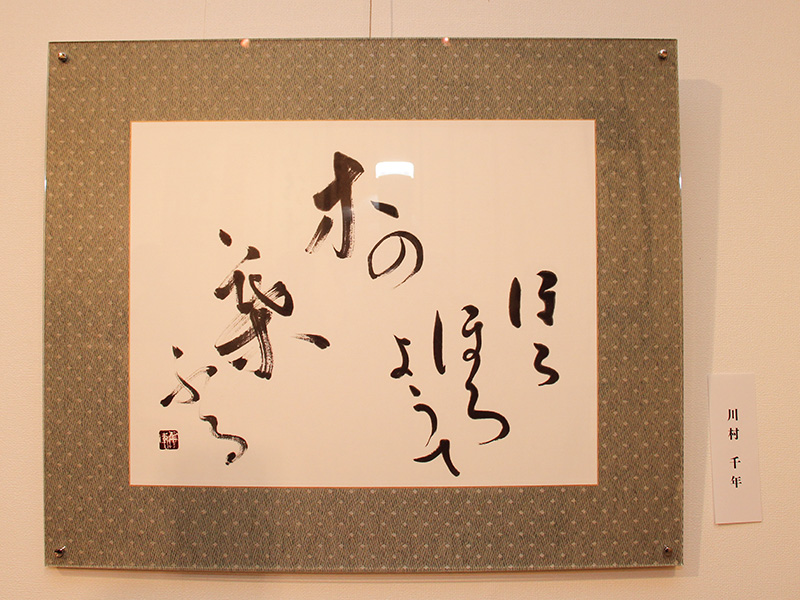 ほろ
ほろ
ようて
木の
葉
ふる
川村 千年